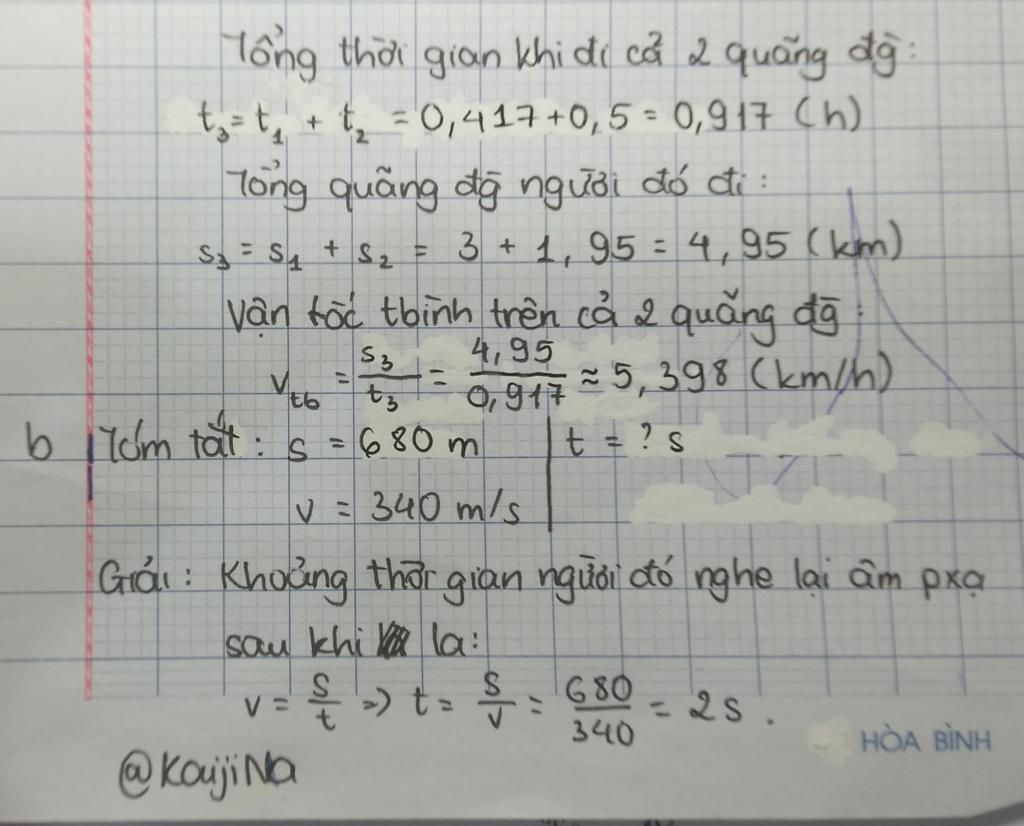 Tổng thời gian khi đi cả 2 quãng đg̀:
t₃ = t₁ + t₂ = 0,417 + 0,5 = 0,917 (h)
Tổng quãng đg̀ người đó đi:
s₃ = s₁ + s₂ = 3 + 1,95 = 4,95 (km)
Vận tốc tbình trên cả 2 quãng đg̀:
v_tb = s₃/t₃ = 4,95/0,917 ≈ 5,398 (km/h)
b Tóm tắt: s = 680 m | t = ? s
v = 340 m/s
Giải: Khoảng thời gian người đó nghe lại âm pxạ
sau khi la:
v = s/t => t = s/v = 680/340 = 2s.
HÒA BÌNH
@KaijiNa